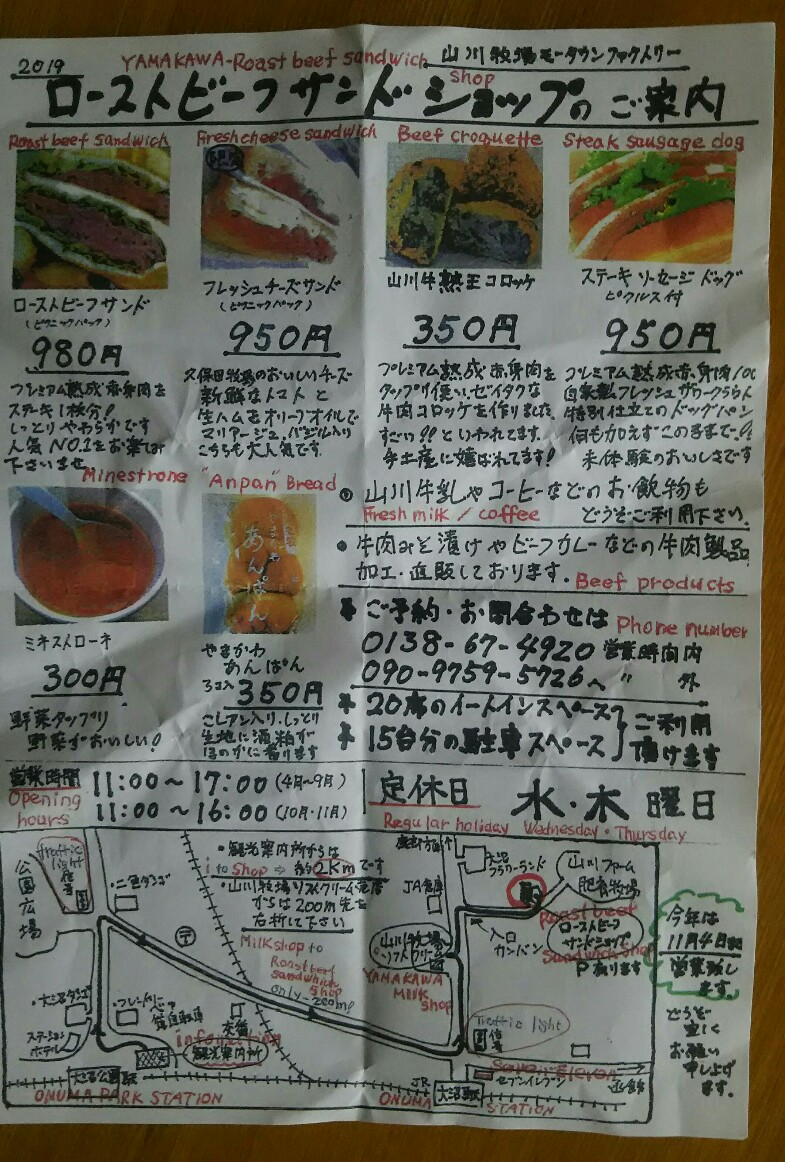 2019
YAMAKAWA-Roast beef sandwich shop
山川牧場モータウンファクトリー
ローストビーフサンドショップのご案内
Roast beef sandwich
ローストビーフサンド
(ピクニックパック)
980円
プレミアム熟成赤身肉を
ステーキ1枚分!
しっとりやわらかです
人気NO.1をお楽しみ
下さいませ
Fresh cheese sandwich
フレッシュチーズサンド
(ピクニックパック)
950円
久保田牧場のおいしいチーズ
新鮮なトマトと
生ハムをオリーブオイルで
マリアージュ、バジル入り
こちらも大人気です
Beef croquette
山川牛熟王コロッケ
350円
プレミアム熟成赤身肉を
タップリ使い、ゼイタクな
牛肉コロッケを作りました
すごい!!といわれてます。
手土産に嬉ばれてます!
Steak sausage dog
ステーキソーセージドッグ
ピクルス付
950円
プレミアム熟成赤身肉
自家製フレッシュザワークラウト
特別仕立てのドッグパン
何も加えずこのままで!!
未体験のおいしさです
Minestrone
ミネストローネ
300円
野菜タップリ
野菜がおいしい!
"Anpan" Bread
やまかわ
あんぱん
やまかわ
あんぱん
3コ入 350円
こしアン入り、しっとり
生地に酒粕が
ほのかに香ります
山川牛乳やコーヒーなどのお飲物も
Fresh milk / coffee
どうぞご利用下さい。
牛肉みそ漬けやビーフカレーなどの牛肉製品
加工・直販しております。
Beef products
ご予約・お問合わせは
Phone number
0138-67-4920 営業時間内
090-9759-5726へ 〃 外
20席のイートインスペース
15台分の駐車スペース
ご利用
頂けます
営業時間
Opening hours
11:00～17:00 (4月～9月)
11:00～16:00 (10月・11月)
定休日 水・木曜日
Regular holiday Wednesday・Thursday
traffic light
公園広場
・観光案内所からは
i to shop ⇨ 約2Kmです
・山川牧場ソフトクリーム売店
からは200m先を
右折して下さい
Milk shop to
Roast beef
sandwich
shop
only-200m!
大沼
フラワーランド
山川ファーム
肥育牧場
JA倉庫
入口
カンバン
Roast beef
ローストビーフ
サンドショップ
Sandwich shop
P有ります
山川牧場
ソフトクリーム
YAMAKAWA
Milk
shop
Traffic light
今年は
11月4日迄
営業致し
ます。
どうぞ
宜しく
お願い
申し上げ
ます。
・大沼ダンゴ
・フレンドリーベア
ステーション
ホテル
交番
information
観光案内所
大沼公園駅
ONUMA PARK STATION
JR
大沼駅
ONUMA STATION
Seven Eleven
セブンイレブン
函館